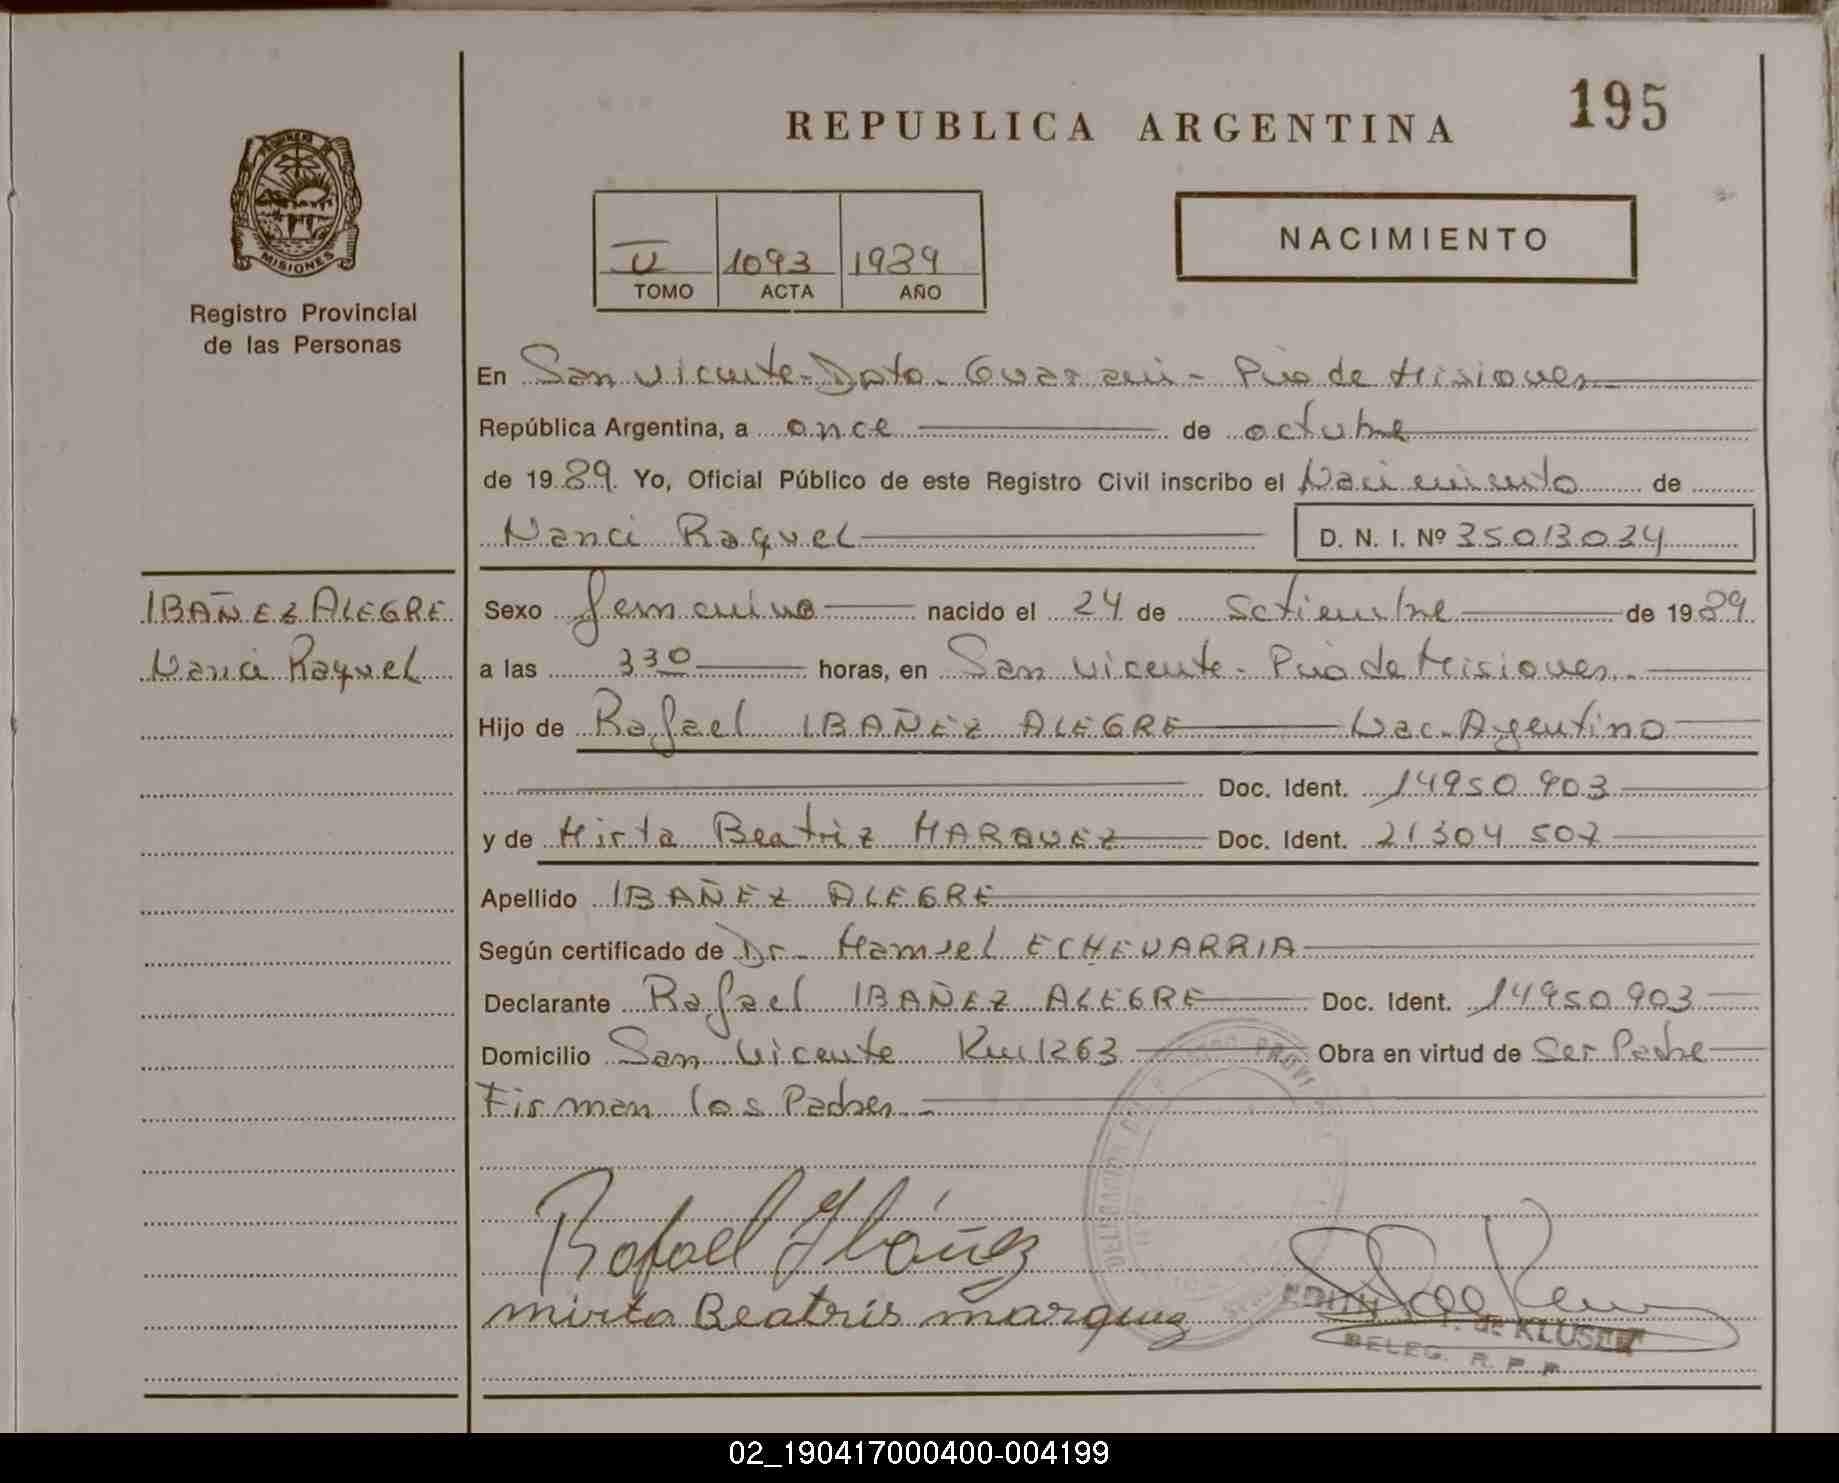 195
REPUBLICA ARGENTINA
MISIONES
Registro Provincial
de las Personas
NACIMIENTO
1093 1989
TOMO ACTA AÑO
En San Vicente - Dpto. Guarani - Pcia de Misiones
República Argentina, a once de octubre
de 1989 Yo, Oficial Público de este Registro Civil inscribo el Nacimiento de
Nanci Raquel D. N. I. Nº 35013034
IBAÑEZ ALEGRE
Nanci Raquel
Sexo femenino nacido el 24 de Setiembre de 1989
a las 330 horas, en San Vicente - Pcia de Misiones
Hijo de Rafael IBAÑEZ ALEGRE Nac. Argentino
Doc. Ident. 14950 903
y de Mirta Beatriz MARQUEZ Doc. Ident. 21304 507
Apellido IBAÑEZ ALEGRE
Según certificado de Dr. ECHEVARRIA
Declarante Rafael IBAÑEZ ALEGRE Doc. Ident. 14950 903
Domicilio San Vicente Km 1263 Obra en virtud de Ser Padre
Firman los Padres
Rafael Ibáñez
mirta Beatris marquez
de KLUSER
DELEG. R. P. P.
02_190417000400-004199